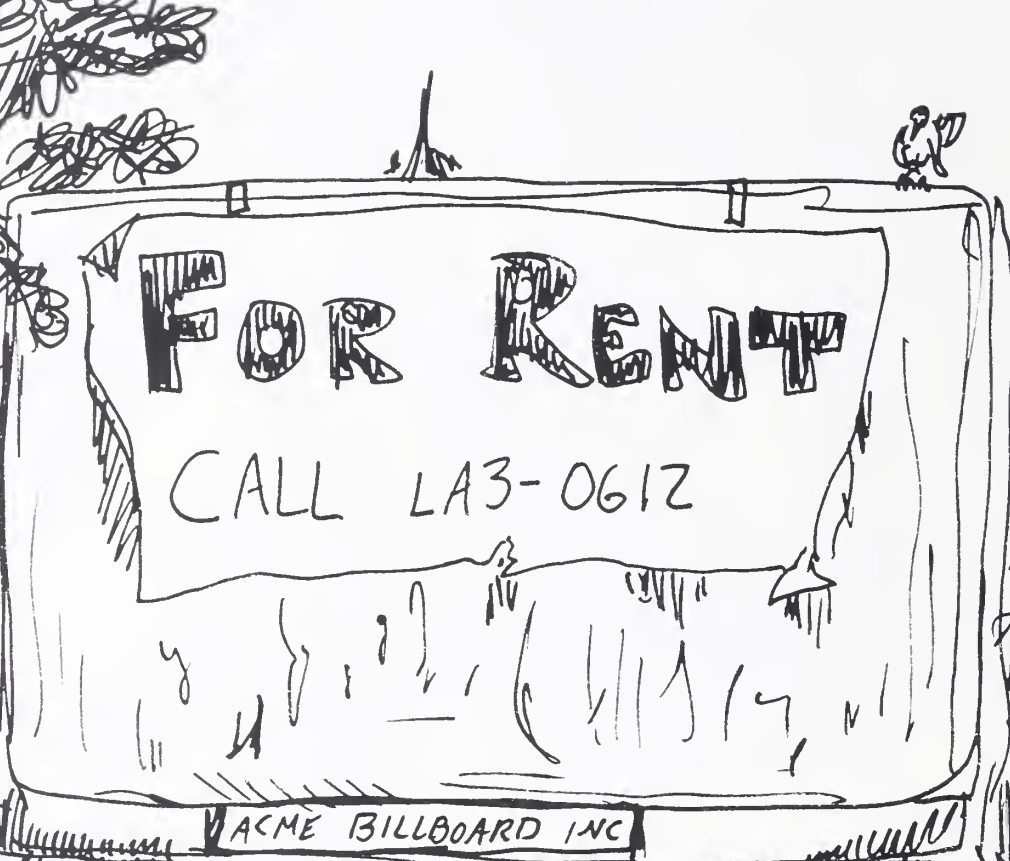 FOR RENT
CALL LA3-0612
ACME BILLBOARD INC